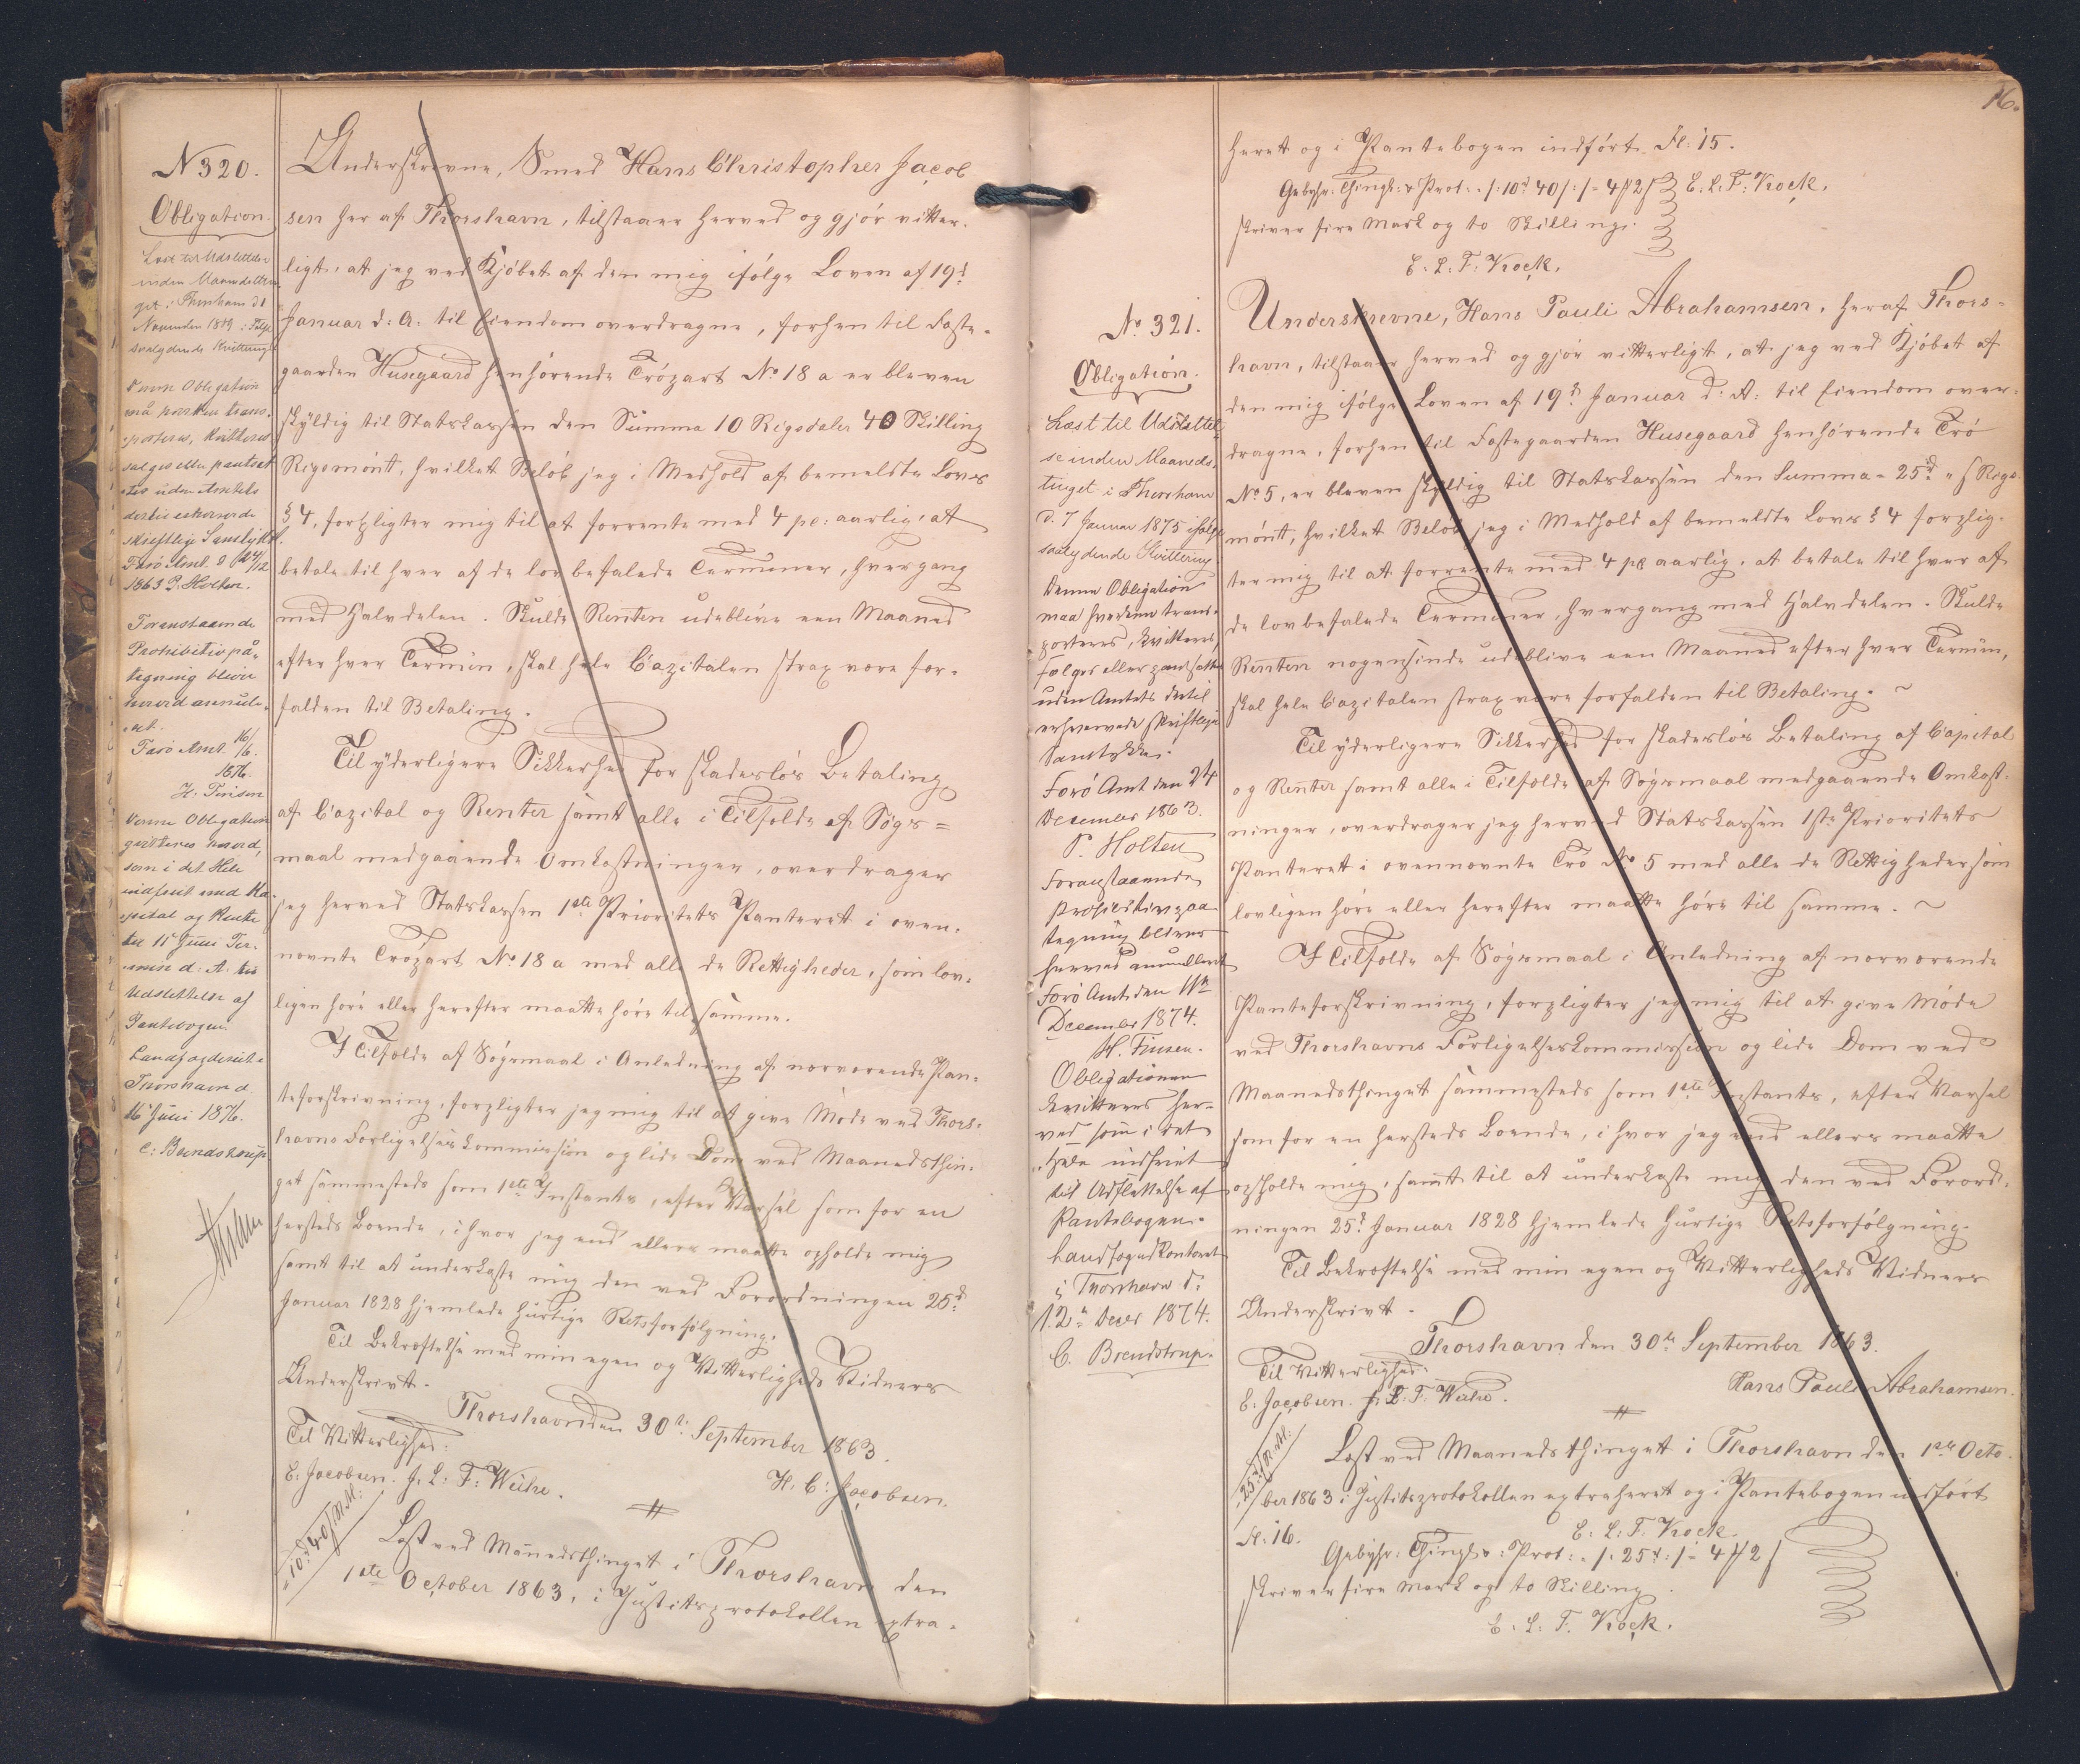 N 320.
Obligation.
Læst til Udslettelse
inden Maanedsthin-
get i Thorshavn d 1
November 1879 ifølge
saalydende Kvittering
Denne Obligation
må hverken trans-
porteres, kvitteres
sælges eller pantsæt-
tes uden Amtets
dertil erhvervede
skriftlige Samtykke.
Færø Amt d 24/12
1863 P. Holten.
Foranstaaende
Prohibitivpå-
tegning bliver
herved annulle-
ret.
Færø Amt. 16/6.
1876.
H. Finsen
Denne Obligation
qvitteres herved,
som i det Hele
indfriet med Ka-
pital og Rente
til 11 Juni Ter-
min d: A: til
Udslettelse af
Pantebogen
Landfogderiet i
Thorshavn d
16 Juni 1876.
C: Brendstrup
Underskrevne, Smed Hans Christopher Jacob
sen her af Thorshavn, tilstaaer herved og gjør vitter-
ligt, at jeg ved Kjøbet af den mig ifølge Loven af 19d
Januar d: A. til Eiendom overdragne, forhen til Fæste-
gaarden Husegaard henhørende Trøpart No 18 a er bleven
skyldig til Statskassen den Summa 10 Rigsdaler 40 Skilling
Rigsmønt, hvilket Beløb jeg i Medhold af bemeldte Lovs
§ 4, forpligter mig til at forrente med 4 pc: aarlig, at
betale til hver af de lovbefalede Terminer, hvergang
med Halvdelen. Skulde Renten udeblive een Maaned
efter hver Termin, skal hele Capitalen strax være for-
falden til Betaling.
Til yderligere Sikkerhed for skadesløs Betaling
af Capital og Renter samt alle i Tilfælde af Søgs=
maal medgaaende Omkostninger, overdrager
jeg herved Statskassen 1ste Prioritets Panteret i oven-
nævnte Trøpart No 18 a med alle de Rettigheder, som lov-
ligen høre eller herefter maatte høre til samme.
I Tilfælde af Søgsmaal i Anledning af nærværende Pan-
teforskrivning, forpligter jeg mig til at give Møde ved Thors-
havns Forligelseskommission og lide Dom ved Maanedsthin-
get sammesteds som 1ste Instants, efter Varsel som for en
hersteds Boende, i hvor jeg end ellers maatte opholde mig
samt til at underkaste mig den ved Forordningen 25d
Januar 1828 hjemlede hurtige Retsforfølgning.
Til Bekræftelse med min egen og Vitterligheds Vidners
Underskrivt.
Thorshavn den 30te September 1863.
Til Vitterlighed:
E: Jacobsen. J. L: F: Weihe. H. C: Jacobsen.
10d 40 s R.M:
Læst ved Månedsthinget i Thorshavn den
1ste October 1863, i Justitsprotokollen extra-
16.
heret og i Pantebogen indført Fl: 15.
Gebyhr: Thingl: & Prot: /: 10d 40 s :/ = 4 # 2 s E. L. F: Krock.
skriver fire Mark og to Skilling.
E. L. F: Krock.
No 321.
Obligation.
Læst til Udslettel-
se inden Maaneds-
tinget i Thorshavn
d. 7 Januar 1875 ifølge
saalydende Kvittering
Denne Obligation
maa hverken trans-
porteres, kvitteres,
sælges eller pantsættes
uden Amtets dertil
erhvervede skriftlige
Samtykke.
Færø Amt den 24
December 1863.
P. Holten
Foranstaaende
Prohibitivpaa-
tegning bliver
herved annulleret
Færø Amt den 11te
December 1874.
H. Finsen.
Obligationen
kvitteres her-
ved som i det
Hele indfriet
til Udslettelse af
Pantebogen.
Landfogedkontoret
i Thorshavn d:
12te Decbr 1874.
C. Brendstrup.
Underskrevne, Hans Pauli Abrahamsen, her af Thors-
havn, tilstaaer herved og gjør vitterligt, at jeg ved Kjøbet af
den mig ifølge Loven af 19d Januar d: A: til Eiendom over-
dragne, forhen til Fæstegaarden Husegaard henhørende Trø
No 5, er bleven skyldig til Statskassen den Summa = 25d " s Rigs-
mønt, hvilket Beløb jeg i Medhold af bemeldte Lovs § 4 forplig-
ter mig til at forrente med 4 pc aarlig, at betale til hver af
de lovbefalede Terminer, hvergang med Halvdelen. Skulde
Renten nogensinde udeblive een Maaned efter hver Termin,
skal hele Capitalen strax være forfalden til Betaling. ~
Til yderligere Sikkerhed for skadesløs Betaling af Capital
og Renter samt alle i Tilfælde af Søgsmaal medgaaende Omkost-
ninger, overdrager jeg herved Statskassen 1ste Prioritets
Panteret i ovennævnte Trø No 5 med alle de Rettigheder som
lovligen høre eller herefter maatte høre til samme. ~
I Tilfælde af Søgsmaal i Anledning af nærværende
Panteforskrivning, forpligter jeg mig til at give Møde
ved Thorshavns Forligelseskommission og lide Dom ved
Maanedsthinget sammesteds som 1ste Instants, efter Varsel
som for en hersteds Boende, i hvor jeg end ellers maatte
opholde mig, samt til at underkaste mig den ved Forord-
ningen 25d Januar 1828 hjemlede hurtige Retsforfølgning.
Til Bekræftelse med min egen og Vitterligheds Vidners
Underskrivt.
Thorshavn den 30te September 1863.
Til Vitterlighed:
E. Jacobsen. J. L. F. Weihe. Hans Pauli Abrahamsen.
25d R.M:
Læst ved Maanedsthinget i Thorshavn den 1ste Octo-
ber 1863 i Justitsprotokollen extraheret og i Pantebogen indført
Fl: 16. E. L: F. Krock.
Gebyhr: Thingl: & Prot: /: 25d :/ = 4 # 2 s
skriver fire Mark og to Skilling.
E. L: F. Krock.